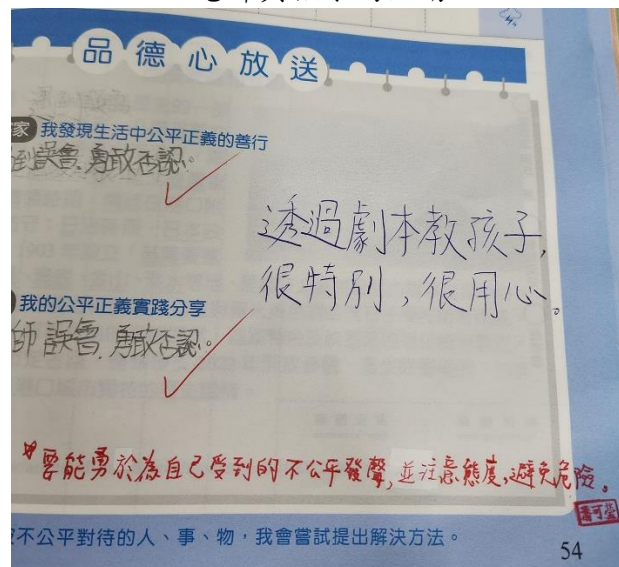 品德心放送
家 我發現生活中公平正義的善行
到誤會,勇敢否認。
透過劇本教孩子,
很特別,很用心。
我的公平正義實踐分享
師誤會,勇敢否認。
要能勇於為自己受到的不公平發聲,並注意態度,避免危險。
不公平對待的人、事、物,我會嘗試提出解決方法。
54